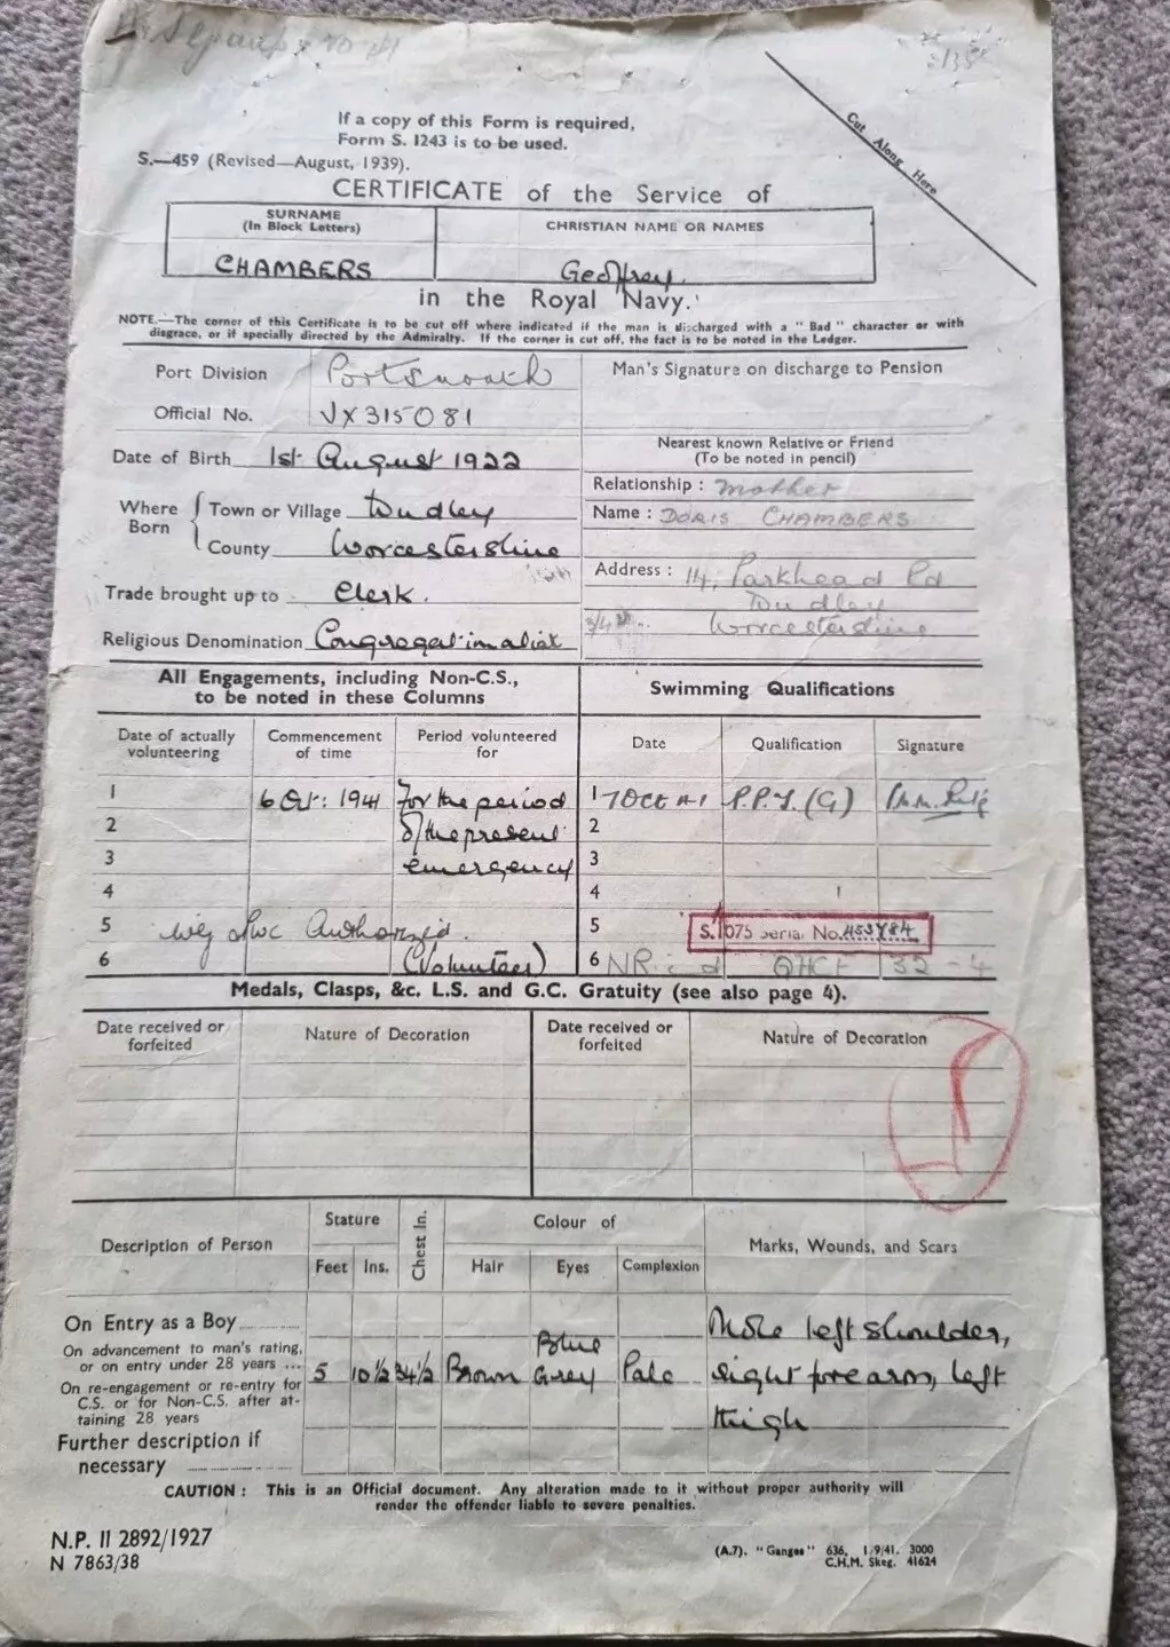 If a copy of this Form is required,
Form S. 1243 is to be used.
Cut Along Here
S.—459 (Revised—August, 1939).
CERTIFICATE of the Service of
SURNAME
(In Block Letters)
CHRISTIAN NAME OR NAMES
CHAMBERS
Geoffrey.
in the Royal Navy.
NOTE.—The corner of this Certificate is to be cut off where indicated if the man is discharged with a "Bad" character or with
disgrace, or if specially directed by the Admiralty. If the corner is cut off, the fact is to be noted in the Ledger.
Port Division Portsmouth
Man's Signature on discharge to Pension
Official No. JX315081
Date of Birth 1st August 1922
Nearest known Relative or Friend
(To be noted in pencil)
Relationship : Mother
Where Born
Town or Village Dudley
Name : DORIS CHAMBERS
County Worcestershire
Address : 14, Parkhead Rd
Dudley
Worcestershire
Trade brought up to Clerk.
Religious Denomination Congregationalist
All Engagements, including Non-C.S.,
to be noted in these Columns
Swimming Qualifications
Date of actually volunteering
Commencement of time
Period volunteered for
Date
Qualification
Signature
1 6 Oct: 1941 For the period
1 7 Oct 41 P.P.T. (G)
2 of the present
2
3 emergency
3
4
4
5 Authorized.
5 S.1075 Serial No.
6 (Volunteer)
6
Medals, Clasps, &c. L.S. and G.C. Gratuity (see also page 4).
Date received or forfeited
Nature of Decoration
Date received or forfeited
Nature of Decoration
Description of Person
Stature
Feet
Ins.
Chest In.
Colour of
Hair
Eyes
Complexion
Marks, Wounds, and Scars
On Entry as a Boy
On advancement to man's rating,
or on entry under 28 years ...
5 10½ 34½ Brown Blue Grey Pale
Mole left shoulder,
right forearm, left
thigh
On re-engagement or re-entry for
C.S. or for Non-C.S. after at-
taining 28 years
Further description if
necessary
CAUTION : This is an Official document. Any alteration made to it without proper authority will
render the offender liable to severe penalties.
N.P. II 2892/1927
N 7863/38
(A.7). "Ganges" 636, 1/9/41. 3000
C.H.M. Skeg. 41624